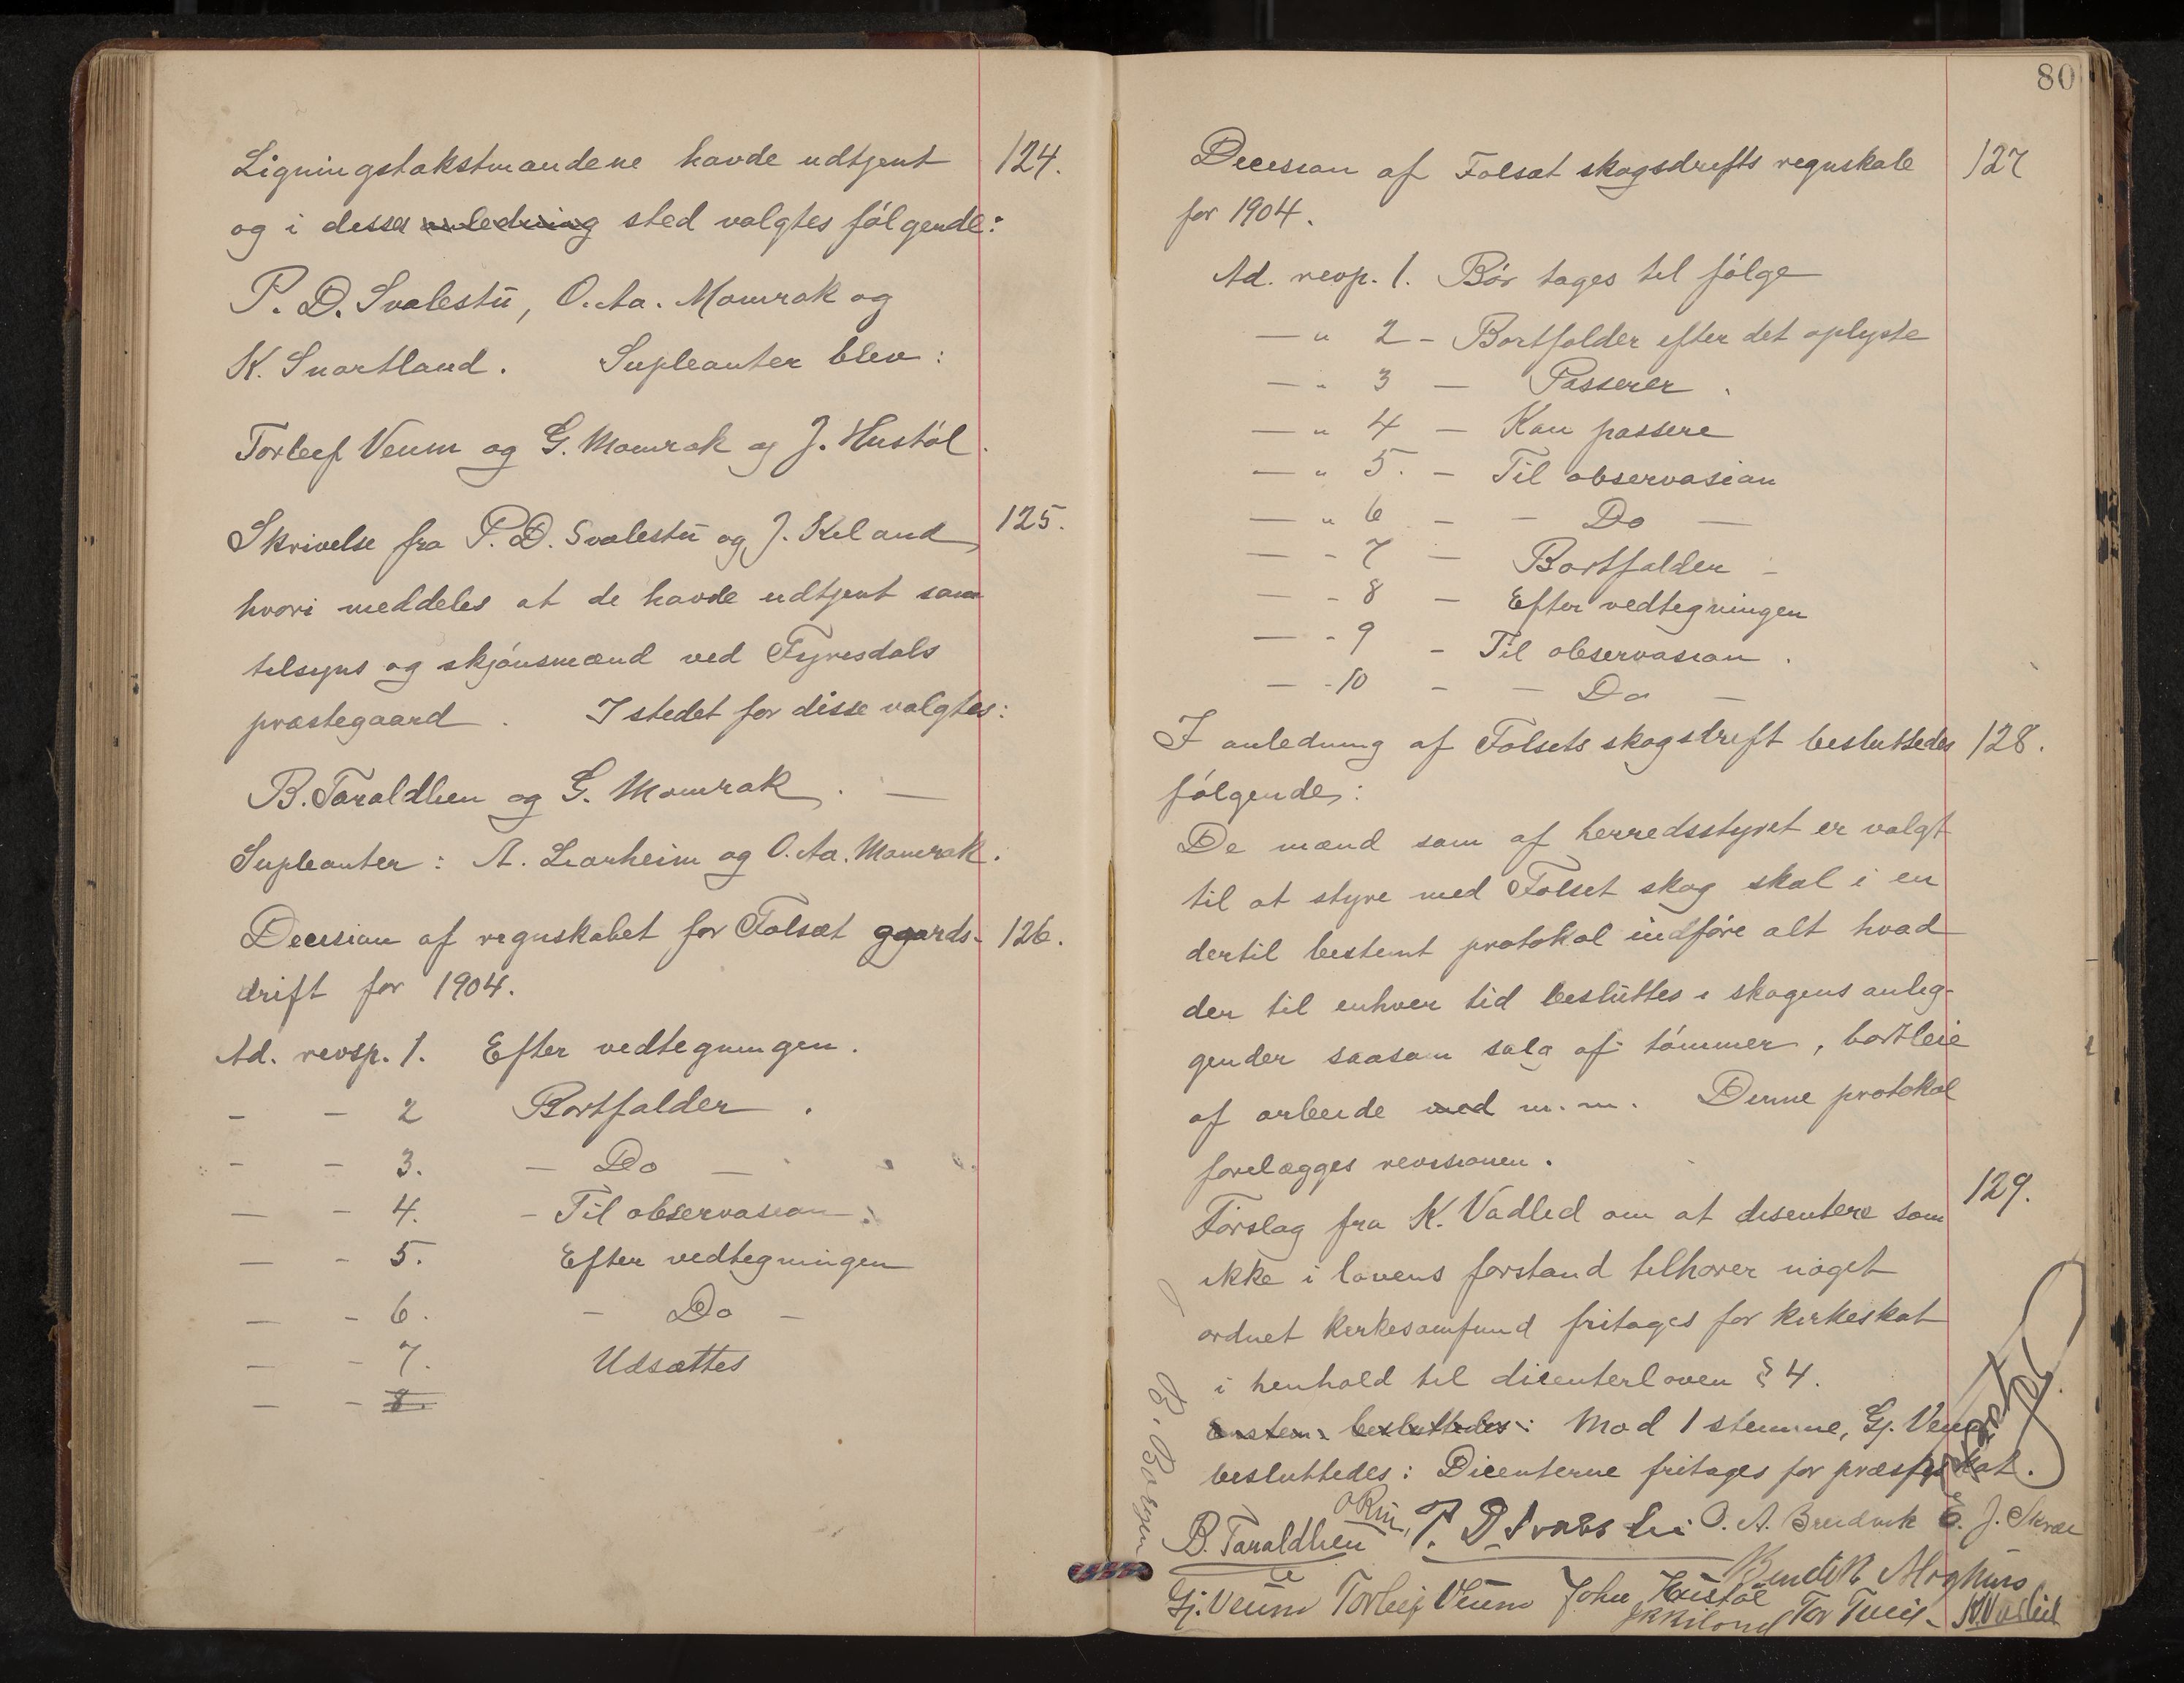 Ligningstakstmændene havde udtjent 124.
og i disses anledning sted valgtes følgende:
P. D. Svalestu, O. Aa. Momrak og
K. Snartland. Supleanter blev:
Torleif Veum og G. Momrak og J. Hustøl.
Skrivelse fra P. D. Svalestu og J. Kiland 125.
hvori meddeles at de havde udtjent som
tilsyns og skjønsmænd ved Fyresdals
præstegaard. I stedet for disse valgtes:
B. Taraldlien og G. Momrak. —
Supleanter: A. og O. Aa. Momrak.
Decision af regnskabet for Folsæt gaards- 126.
drift for 1904.
Ad. revsp. 1. Efter vedtegningen.
- - 2 Bortfalder.
- - 3. — Do —
— - 4. - Til observasion -
— - 5. Efter vedtegningen
— - 6. - Do -
— - 7. Udsættes
— - 8.
80
Decision af Folsæt skogsdrifts regnskab 127
for 1904.
Ad. revp. 1. Bør tages til følge
— " 2 - Bortfalder efter det oplyste
— " 3 — Passerer.
— " 4 — Kan passere
— " 5. - Til observasion
— " 6 - - Do —
— - 7 — Bortfalder -
— - 8 — Efter vedtegningen
— - 9 - Til observasion.
— - 10 - - Do —
I anledning af Folsets skogsdrift besluttedes 128.
følgende:
De mænd som af herredsstyret er valgt
til at styre med Folset skog skal i en
dertil bestemt protokol indføre alt hvad
der til enhver tid besluttes i skogens anlig-
gender saasom salg af tømmer, bortleie
af arbeide med m. m. Denne protokol
forelægges revisionen.
129.
Forslag fra K. Vadlid om at disentere som
ikke i lovens forstand tilhører noget
ordnet kirkesamfund fritages for kirkeskat
i henhold til dicenterloven § 4.
Enstem. besluttedes: Mod 1 stemme, Gj. Veum
besluttedes: Dicenterne fritages for præsteskat.
B. Taraldlien P. D. Svalestu O. A. Breidvik E. J. Skræi
Gj. Veum Torleif Veum John Hustøl
J K Kiland K. Vadlid